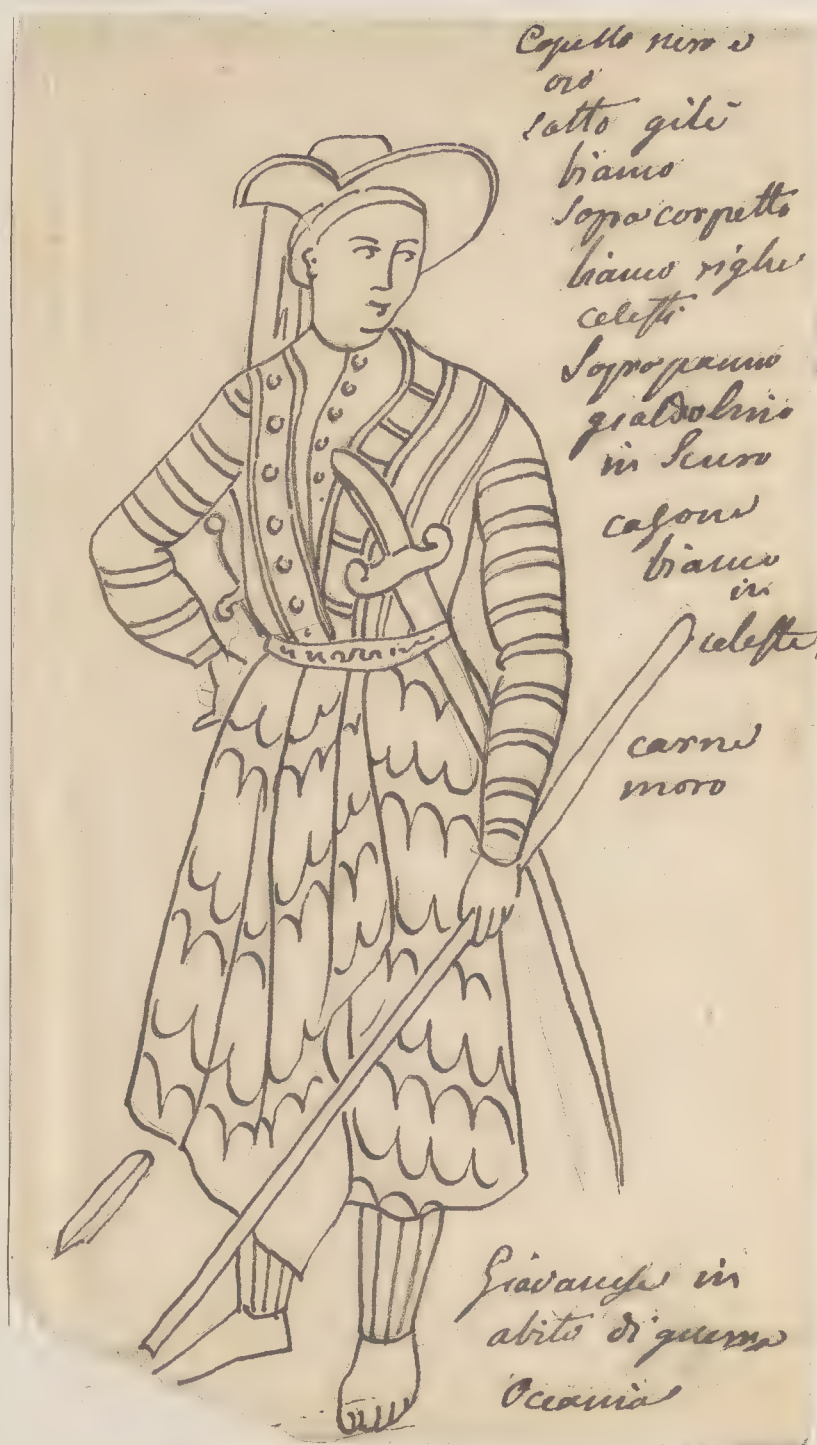 Capello nero e
oro
sotto gilè
bianco
sopra corpetto
bianco righe
celesti
Sopra panno
gialdolino
in scuro
casone
bianco
in
celeste
carne
moro
Giavanese in
abito di guerra
Oceania